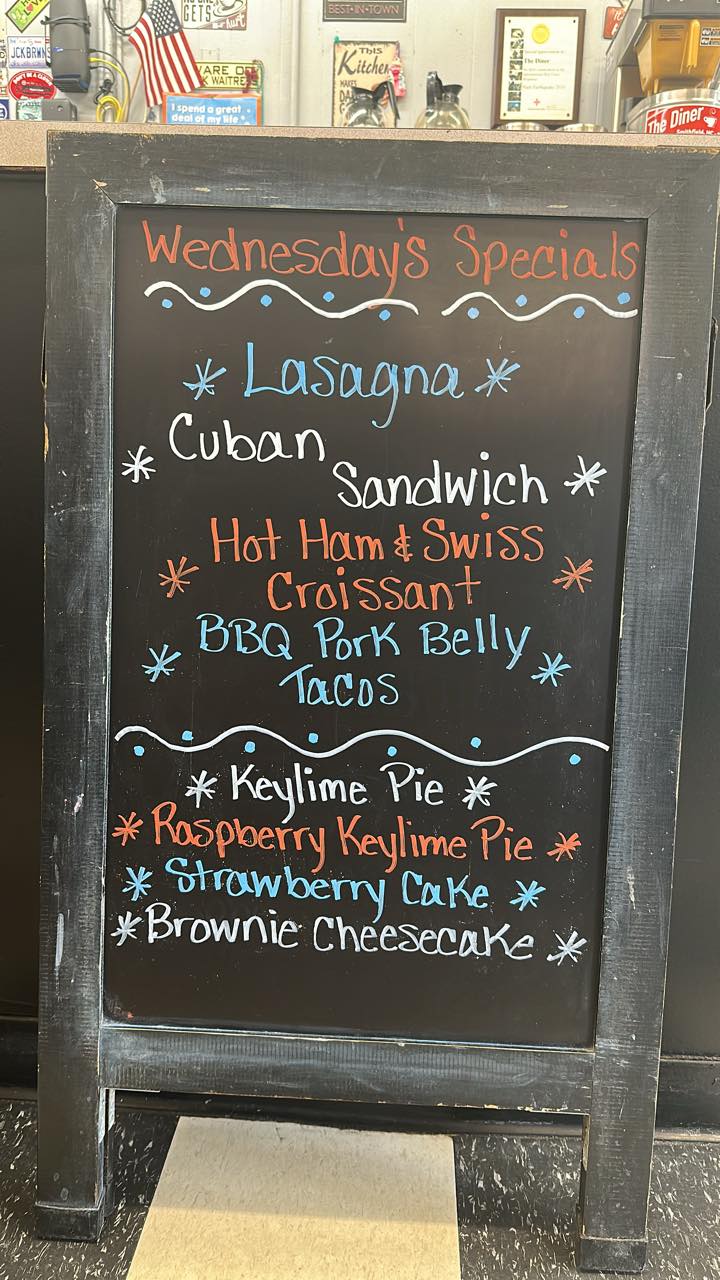 BEST-IN-TOWN
GETS
hurt
JCKBRWN
This
Kitchen
I spend a great
deal of my life
The Diner
The Diner
Smithfield, NC
Wednesday's Specials
Lasagna
Cuban
Sandwich
Hot Ham & Swiss
Croissant
BBQ Pork Belly
Tacos
Keylime Pie
Raspberry Keylime Pie
Strawberry Cake
Brownie Cheesecake